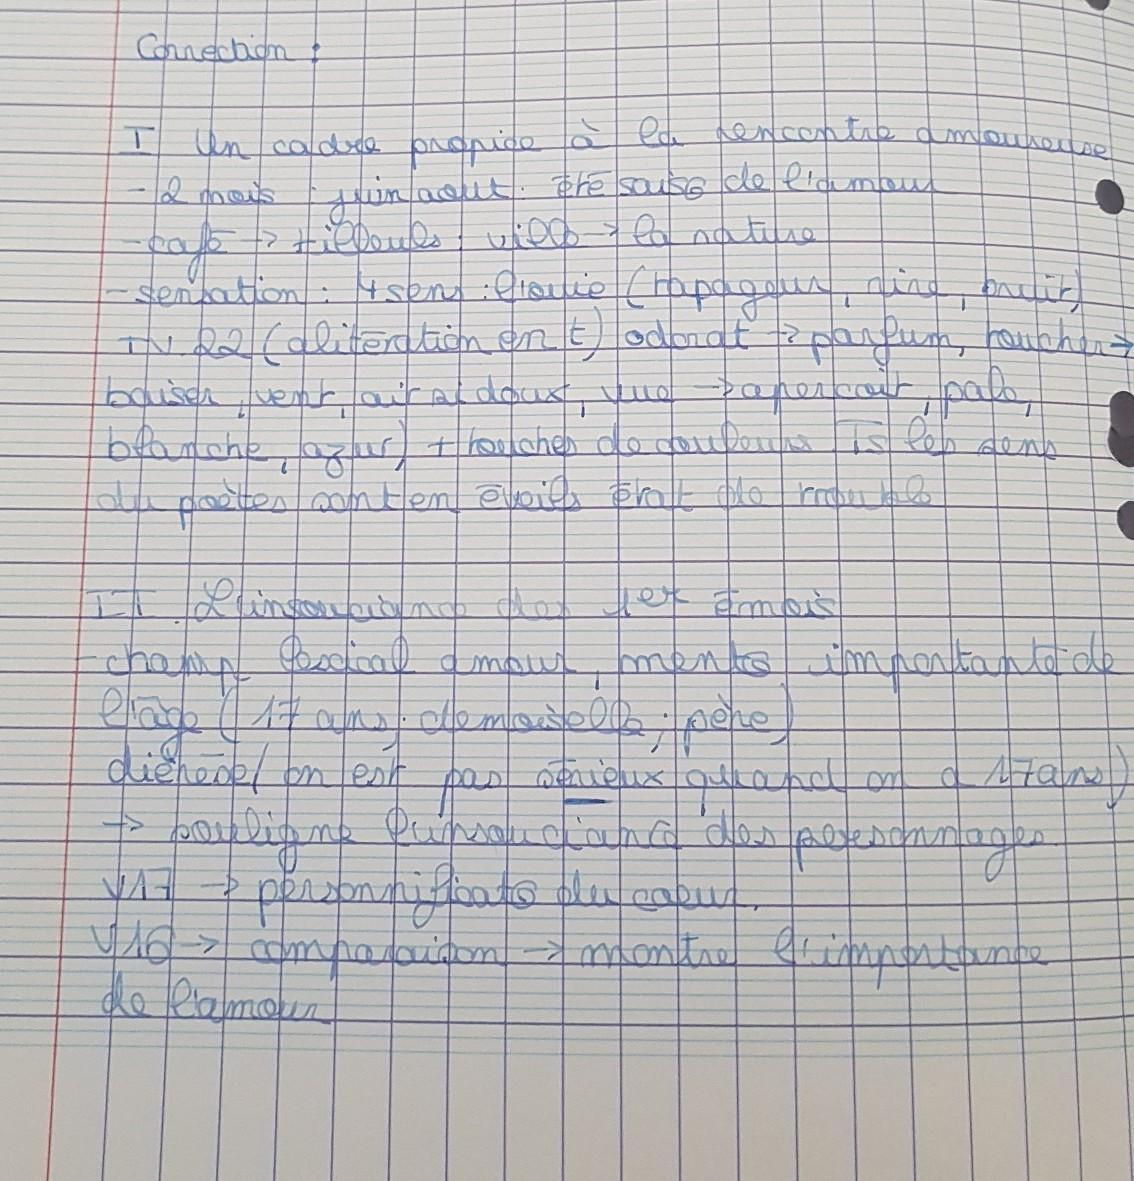 Correction :
I Un cadre propice à la rencontre amoureuse
- 2 mois : juin aout. été saiso de l'amour
- café → tilleuls ; ville → la nature
- sensation : 4 sens : l'ouïe (tapageur, ,
+ v. 22 (alitération en t) odorat → parfum, toucher →
baiser, vent, air si doux, vue → apercoit, pale,
blanche, azur) + touches de couleurs Ts les sens
du poètes sont en éveils état de
II. L'insouciance des 1er émois
- champ lexical amour, ments importants de
l'age (17 ans; demoiselle; père)
dièrèse (on est pas sérieux quand on a 17 ans)
→ souligne l'insouciance des personnages
V17 → personnificato du coeur.
V16 → comparaison → montre l'importance
de l'amour